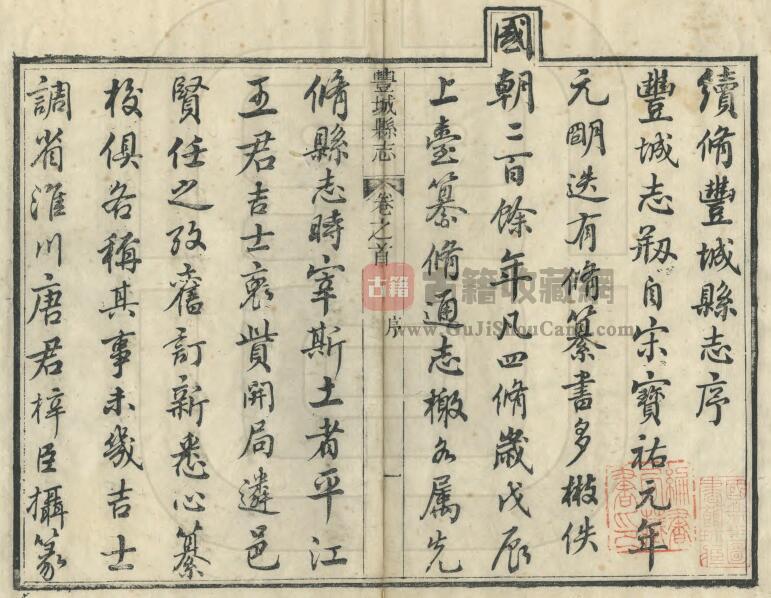 續脩豐城縣志序
豐城志剏自宋寶祐元年
元明迭有脩纂書多散佚
國朝二百餘年凡四脩歲戊辰
上臺纂脩通志檄各属先
豐城縣志 卷之首 序 一
脩縣志時宰斯土者平江
王君吉士裒貲開局遴邑
賢任之攷舊訂新悉心纂
校俱各稱其事未幾吉士
調省淮川唐君梓臣攝篆
古籍
古籍收藏網
www.GuJiShouCang.com